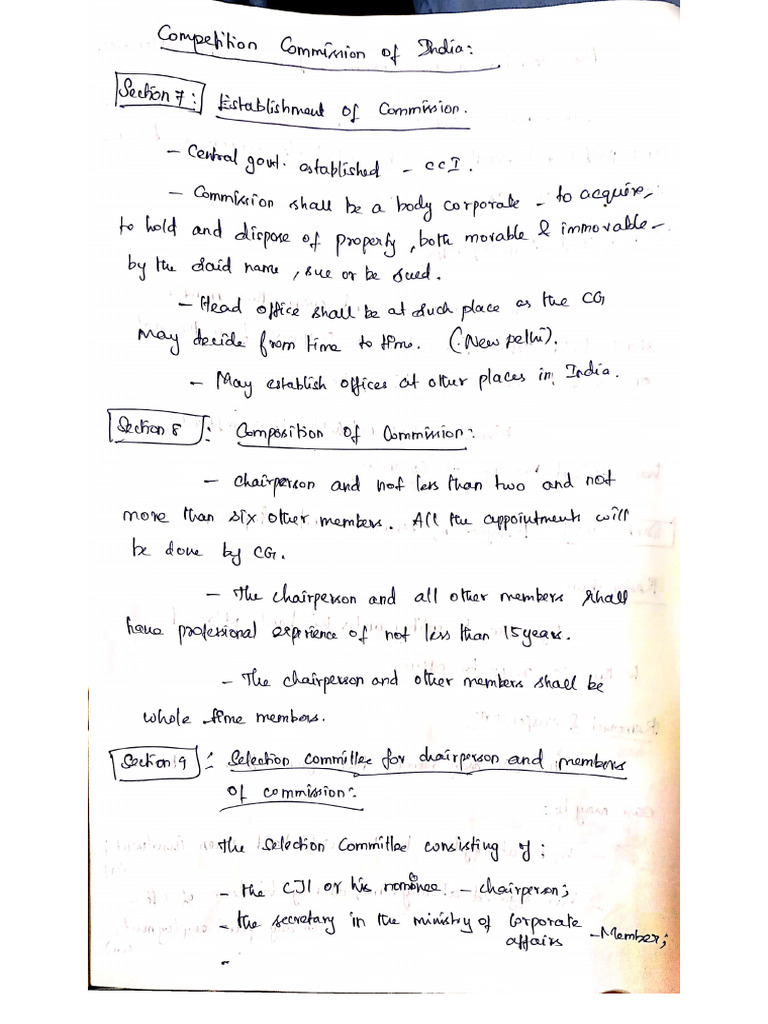 Competition Commission of India:
Section 7: Establishment of Commission.
- Central govt. established - CCI.
- Commission shall be a body corporate - to acquire,
to hold and dispose of property, both movable & immovable -
by the said name, sue or be sued.
- Head office shall be at such place as the CG
may decide from time to time. (New Delhi).
- May establish offices at other places in India.
Section 8: Composition of Commission:
- Chairperson and not less than two and not
more than six other members. All the appointments will
be done by CG.
- The chairperson and all other members shall
have professional experience of not less than 15 years.
- The chairperson and other members shall be
whole time members.
Section 9: Selection committee for chairperson and members
of commission:
The Selection Committee consisting of:
- the CJI or his nominee - chairperson;
- the secretary in the ministry of Corporate
affairs - Member;
-